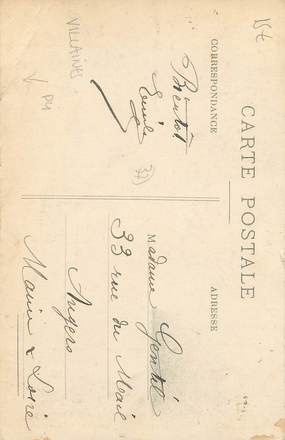 CARTE POSTALE
CORRESPONDANCE
ADRESSE
VILLAINES
Bientôt
Emile
37)
Madame Gentil
33 rue du Mail
Angers
Maine & Loire